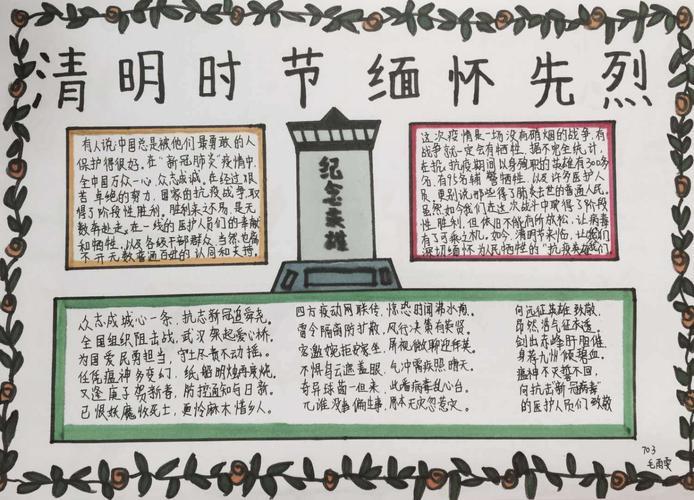 清明时节缅怀先烈
有人说:中国总是被他们最勇敢的人
保护得很好。在“新冠肺炎”疫情中,
全中国万众一心,众志成城。在经过艰
苦卓绝的努力,国家的抗疫战争取
得了阶段性胜利。胜利来之不易,是无
数奔赴在一线的医护人员们的奉献
和牺牲,以及各级干部群众,当然也离
不开无数普通百姓的认同和支持。
纪念英雄
这次疫情是一场没有硝烟的战争,有
战争就一定会有牺牲。据不完全统计,
在抗疫期间以身殉职的英雄有300多
名,有95名辅警牺牲,以及许多医护人
员,更别说那些得了肺炎去世的普通人民。
虽然如今我们在这次战斗中取得了阶段
性胜利,但依旧不能有所放松,让病毒
有了可乘之机。如今清明节来临,让我们
深切缅怀为人民牺牲的“抗疫英雄们
众志成城心一条,抗志新冠追舜尧。
全国组织阻击战,武汉架起爱心桥。
为国爱民勇担当,守土尽责不动摇。
任凭瘟神多变幻,纸船明烛再度烧。
又逢庚子贺新春,防控通知与日新。
已恨妖魔收死士,更怜麻木惜乡人。
四方疫动网联传,惊恐时闻沸水煎。
雷令隔离防扩散,风行决策有
宴邀婉拒
不惧身云遮羞眼,气冲霄
奇异球菌一但来,此番病毒乱心台。
向远征英雄致敬,
昂然浩气征
剑出赤峰肝胆催,
身若九州倾碧血,
瘟神不灭誓不回,
向抗击新冠病毒
的医护人员们致敬
703
毛雨雯